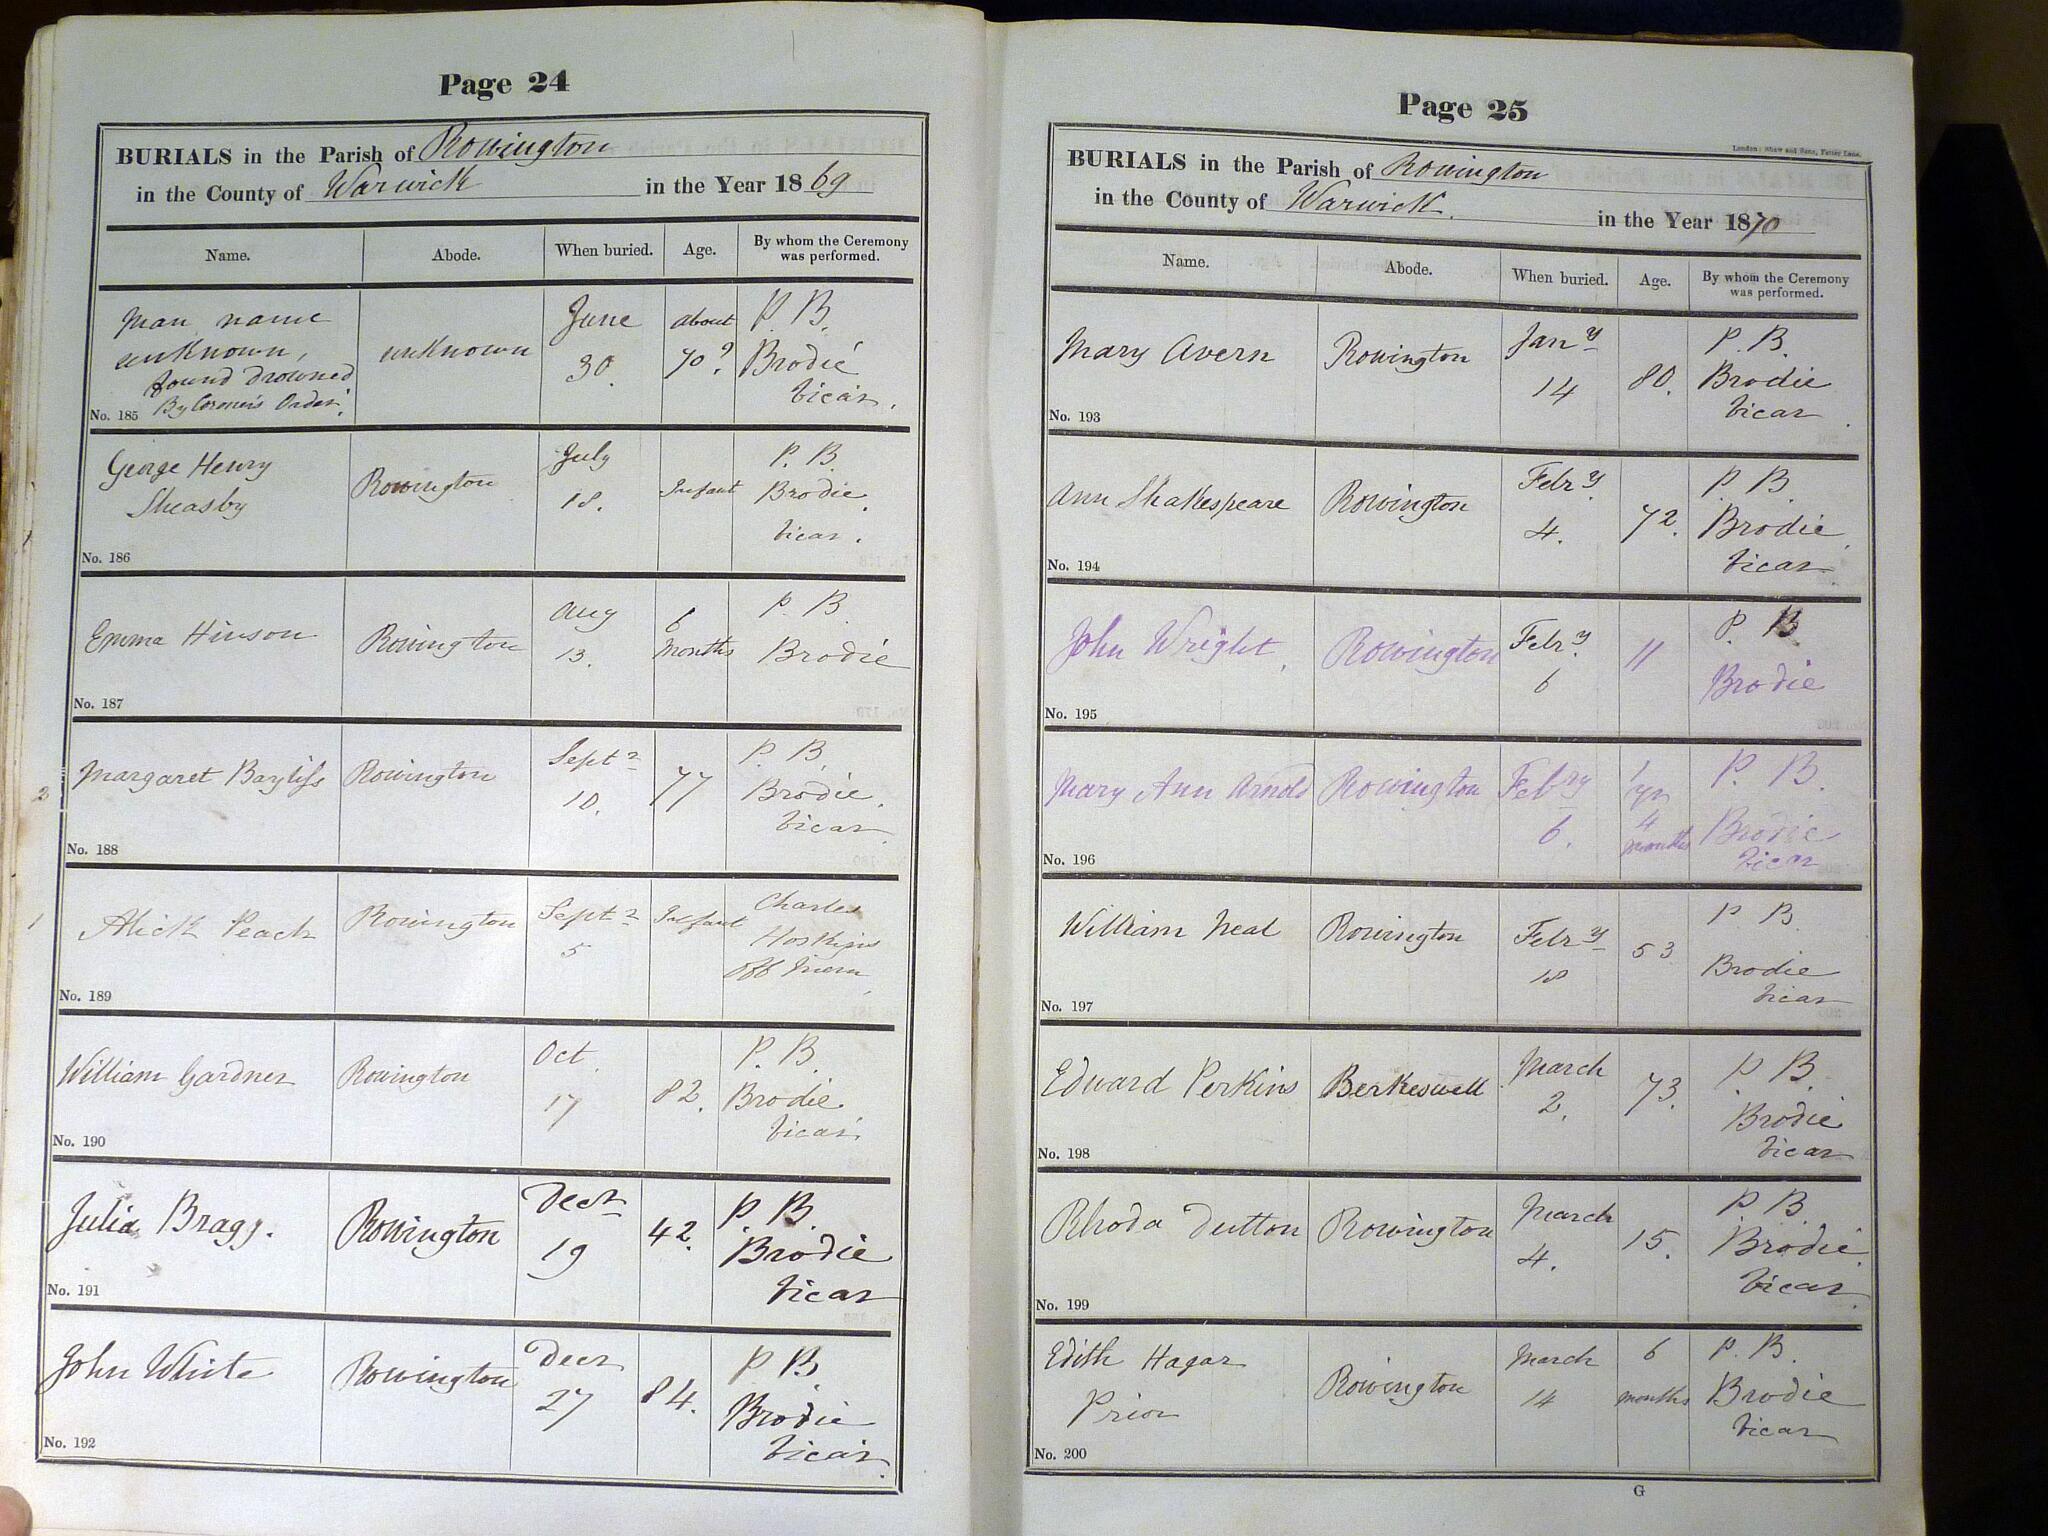 Page 24
BURIALS in the Parish of Rowington
in the County of Warwick in the Year 1869
Name. Abode. When buried. Age. By whom the Ceremony was performed.
Man name unknown, found drowned By Coroner's Order. unknown June 30. about 70? P. B. Brodie Vicar.
No. 185
George Henry Sheasby Rowington July 18. Infant P. B. Brodie. Vicar.
No. 186
Emma Hinson Rowington Aug 13. 6 Months P. B. Brodie
No. 187
2
Margaret Bayliss Rowington Septr 10. 77 P. B. Brodie. Vicar
No. 188
1
Alick Peach Rowington Septr 5 Infant Charles Hoskins Off Min
No. 189
William Gardner Rowington Oct. 17 82. P. B. Brodie. Vicar.
No. 190
Julia Bragg. Rowington Decr 19 42. P. B. Brodie Vicar
No. 191
John White Rowington Decr 27 84. P. B. Brodie Vicar.
No. 192
Page 25
London: Shaw and Sons, Fetter Lane.
BURIALS in the Parish of Rowington
in the County of Warwick. in the Year 1870
Name. Abode. When buried. Age. By whom the Ceremony was performed.
Mary Avern Rowington Jany 14 80. P. B. Brodie Vicar.
No. 193
Ann Shakespeare Rowington Febry. 4. 72. P. B. Brodie. Vicar.
No. 194
John Wright. Rowington Febry. 6 11 P. B Brodie
No. 195
Mary Ann Arnold Rowington Febry 6. 1 yr 4 months P. B. Brodie Vicar
No. 196
William Neal Rowington Febry 18 53 P. B. Brodie Vicar
No. 197
Edward Perkins Berkeswell March 2. 73. P. B. Brodie Vicar
No. 198
Rhoda Dutton Rowington March 4. 15. P. B. Brodie. Vicar.
No. 199
Edith Hagar Prior Rowington March 14 6 months P. B. Brodie Vicar
No. 200
G